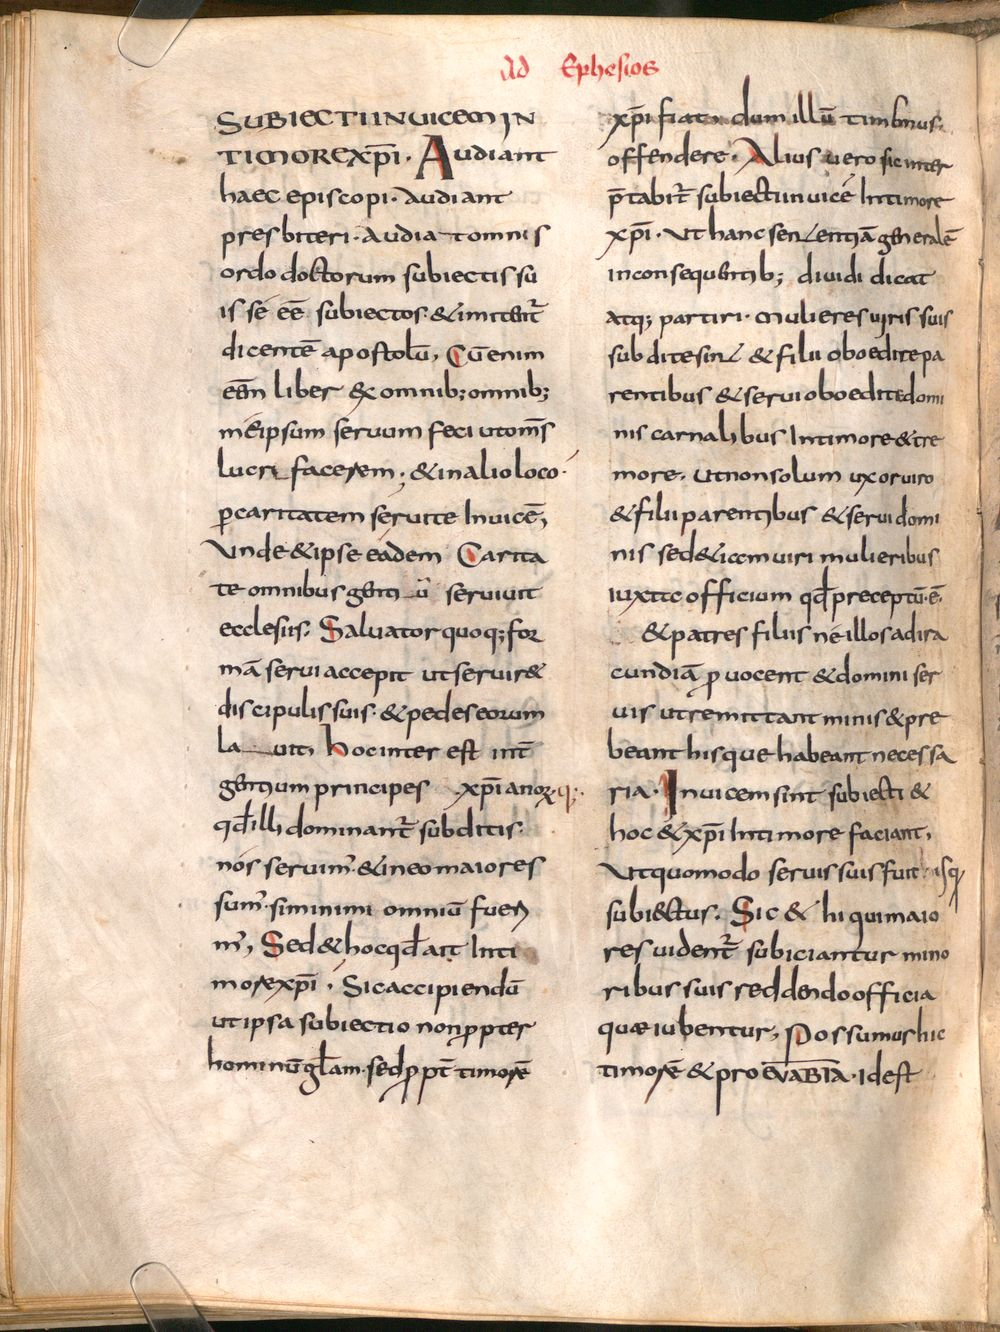 Ad Ephesios
SUBIECTI INVICEM IN
TIMORE xp̄i · Audiant
haec episcopi · Audiant
presbiteri · Audia tomnis
ordo doctorum subiectis su
is se ēē subiectos · & imitent̄
dicentē apostolū, Cū enim
eēm liber ex omnib; omnib;
meipsum servum feci ut om̄s
lucri facerem ; & in alio loco ·
p̱ caritatem servite Invicē,
Unde & ipse eadem Carita
te omnibus gentiū servivit
ecclesiis. Salvator quoq; for
mā servi accepit ut servir&
discipulis suis · & pedes eorum
la vit, hoc inter est int̄
gentium principes xp̄ianor · q;
qđ illi dominant̄ subditis ·
nós servim̄ · & in eo maiores
sum̄ · si minimi omniū fueri
m̄, Sed & hoc qđ ait In ti
more xp̄i · Sic accipiendū
ut ipsa subiectio non ꝓpter
hominū gl̄am · sed ꝓpt̄ timorē
xp̄i fiat · dum illū timemus
offendere · Alius vero sic inter
p̄tabit̄ subiecti invicē In timore
xp̄i · Ut hanc sententiā generalē
in consequentib; dividi dicat
atq; partiri · Mulieres viris suis
subdite sint & filii oboedite pa
rentibus & servi oboedite domi
nis carnalibus In timore & tre
more · ut non solum uxor viro
& filii parentibus & servi domi
nis sed & item viri mulieribus
iuxta officium qđ preceptū · ē ·
& patres filiis ne illos ad ira
cundiā ꝓvocent & domini ser
vis ut remittant minis & pre
beant hisque habeant necessa
ria · Invicem sint subiecti &
hoc & xp̄i In timore faciant,
Ut quomodo servis suis fuit isq;
subiectus · Sic & hi qui maio
res vident̄ subiciantur mino
ribus suis reddendo officia
quae iubentur, Possumus hic
timorē & pro EVΛABIA · Idest